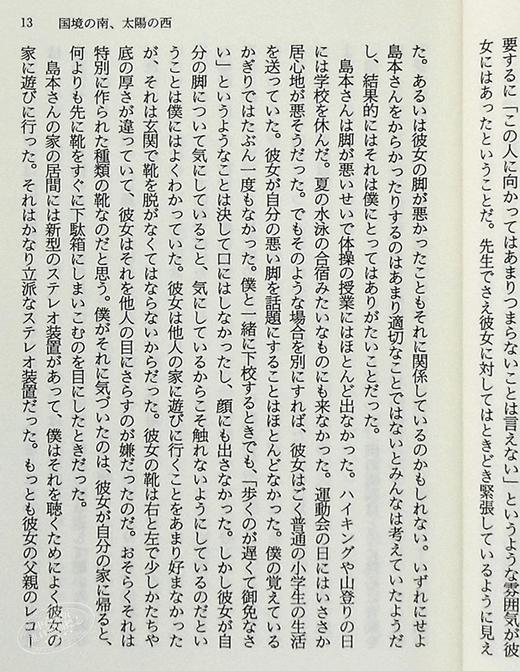 要するに「この人に向かってはあまりつまらないことは言えない」というような雰囲気が彼
女にはあったということだ。先生でさえ彼女に対してはときどき緊張しているように見え
13 国境の南、太陽の西
た。あるいは彼女の脚が悪かったこともそれに関係しているのかもしれない。いずれにせよ
島本さんをからかったりするのはあまり適切なことではないとみんなは考えていたようだ
し、結果的にはそれは僕にとってはありがたいことだった。
島本さんは脚が悪いせいで体操の授業にはほとんど出なかった。ハイキングや山登りの日
には学校を休んだ。夏の水泳の合宿みたいなものにも来なかった。運動会の日にはいささか
居心地が悪そうだった。でもそのような場合を別にすれば、彼女はごく普通の小学生の生活
を送っていた。彼女が自分の悪い脚を話題にすることはほとんどなかった。僕の覚えている
かぎりではたぶん一度もなかった。僕と一緒に下校するときでも、「歩くのが遅くて御免なさ
い」というようなことは決して口にはしなかったし、顔にも出さなかった。しかし彼女が自
分の脚について気にしていること、気にしているからこそ触れないようにしているのだとい
うことは僕にはよくわかっていた。彼女は他人の家に遊びに行くことをあまり好まなかった
が、それは玄関で靴を脱がなくてはならないからだった。彼女の靴は右と左で少しかたちや
底の厚さが違っていて、彼女はそれを他人の目にさらすのが嫌だったのだ。おそらくそれは
特別に作られた種類の靴なのだと思う。僕がそれに気づいたのは、彼女が自分の家に帰ると、
何よりも先に靴をすぐに下駄箱にしまいこむのを目にしたときだった。
島本さんの家の居間には新型のステレオ装置があって、僕はそれを聴くためによく彼女の
家に遊びに行った。それはかなり立派なステレオ装置だった。もっとも彼女の父親のレコー